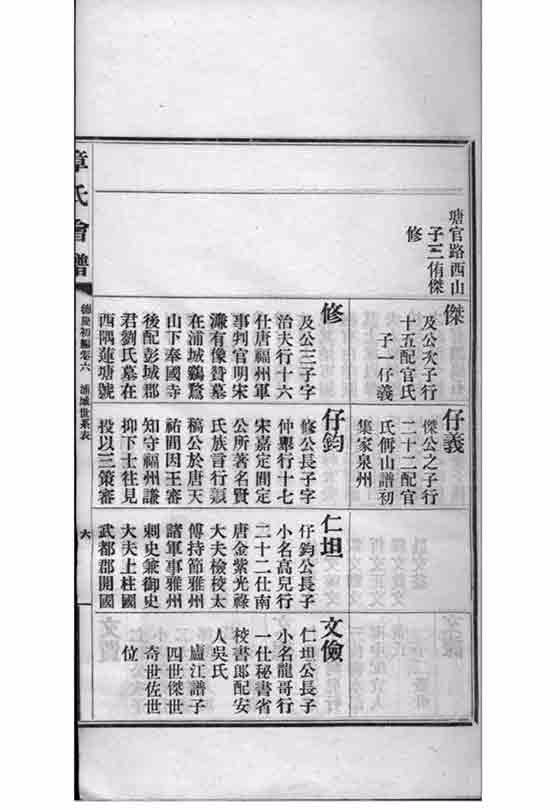 塘官路西山
子三侑傑
修
傑
及公次子行
十五配官氏
子一仔義
修
及公三子字
治夫行十六
仕唐福州軍
事判官明宋
濂有像贊墓
在浦城鷄鶩
山下奉國寺
後配彭城郡
君劉氏墓在
西隅蓮塘號
仔義
傑公之子行
二十二配官
氏侑山譜初
集家泉州
仔鈞
修公長子字
仲舉行十七
宋嘉定間定
公所著名賢
氏族言行類
稿公於唐天
祐間因王審
知守福州謙
抑下士往見
投以三策審
仁坦
仔鈞公長子
小名高兒行
二十二仕南
唐金紫光祿
大夫檢校太
傅持節雅州
諸軍事雅州
刺史兼御史
大夫上柱國
武都郡開國
文儉
仁坦公長子
小名龍哥行
一仕秘書省
校書郎配安
人吳氏
廬江譜子
四世傑世
奇世佐世
位
章氏會譜
德慶初編卷六
浦城世系表
六